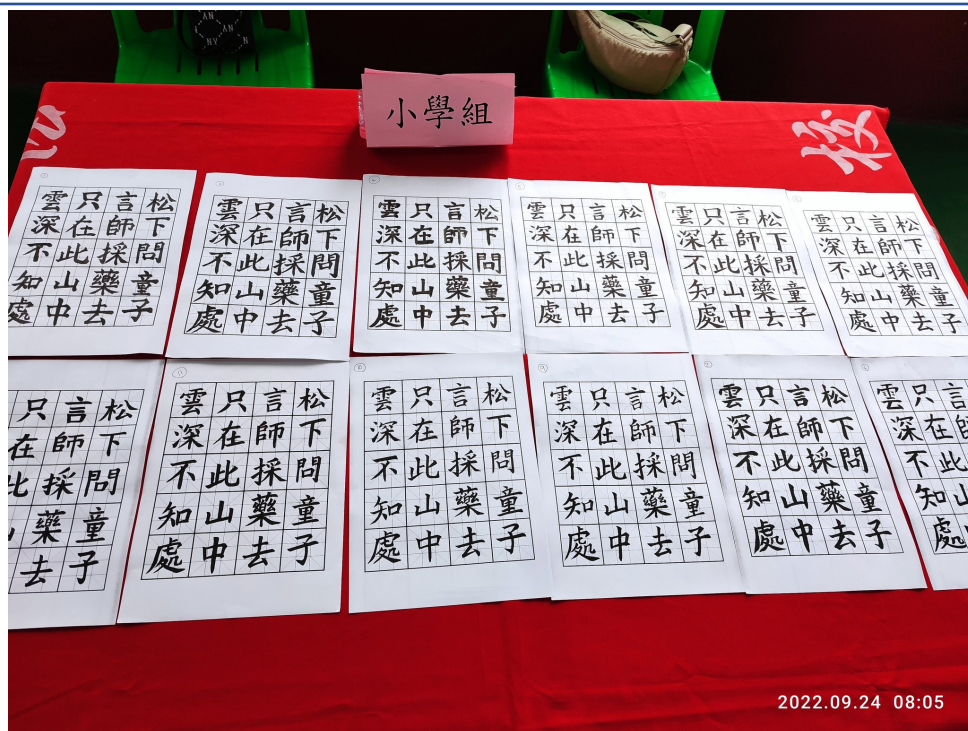 小學組
校
松下問童子
言師採藥去
只在此山中
雲深不知處
松下問童子
言師採藥去
只在此山中
雲深不知處
松下問童子
言師採藥去
只在此山中
雲深不知處
松下問童子
言師採藥去
只在此山中
雲深不知處
松下問童子
言師採藥去
只在此山中
雲深不知處
松下問童子
言師採藥去
只在此山中
雲深不知處
松下問童子
言師採藥去
只在
松下問童子
言師採藥去
只在此山中
雲深不知處
松下問童子
言師採藥去
只在此山中
雲深不知處
松下問童子
言師採藥去
只在此山中
雲深不知處
松下問童子
言師採藥去
只在此山中
雲深不知處
言
只在此山
雲深不知處
2022.09.24 08:05